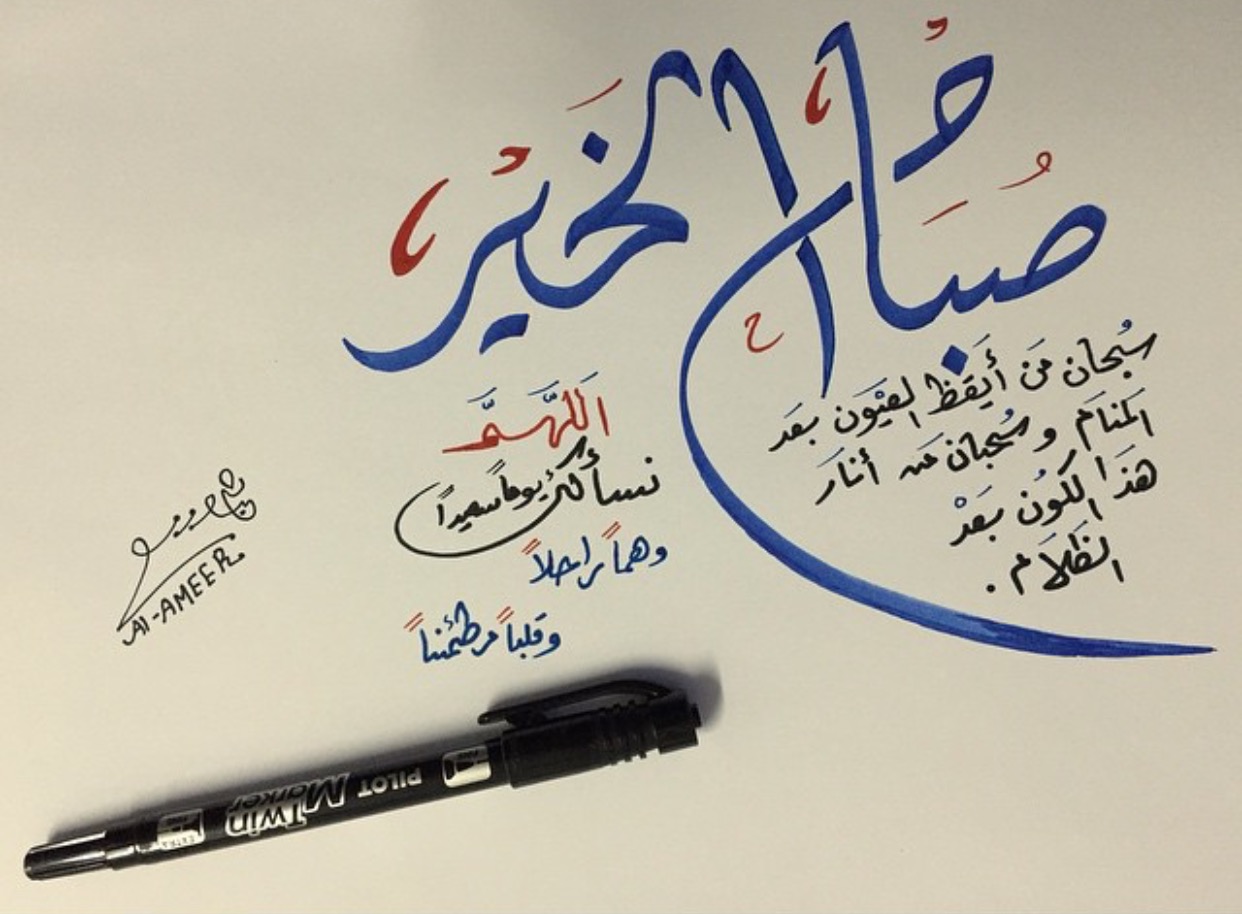 صُبَاح الخَيْر
سُبحان مَن أَيقَظ العيُون بعَد
المَنام و سُبحان مَن أنارَ
هذَا الكُون بعَدْ
الظَلَام .
اَللّهُـمَّ
نسأَلُكَ يوماً سعيداً
وهماً راحلاً
وقلباً مطمئناً
AL-AMEER
PILOT
Twin
Marker
EXTRA FINE
FINE